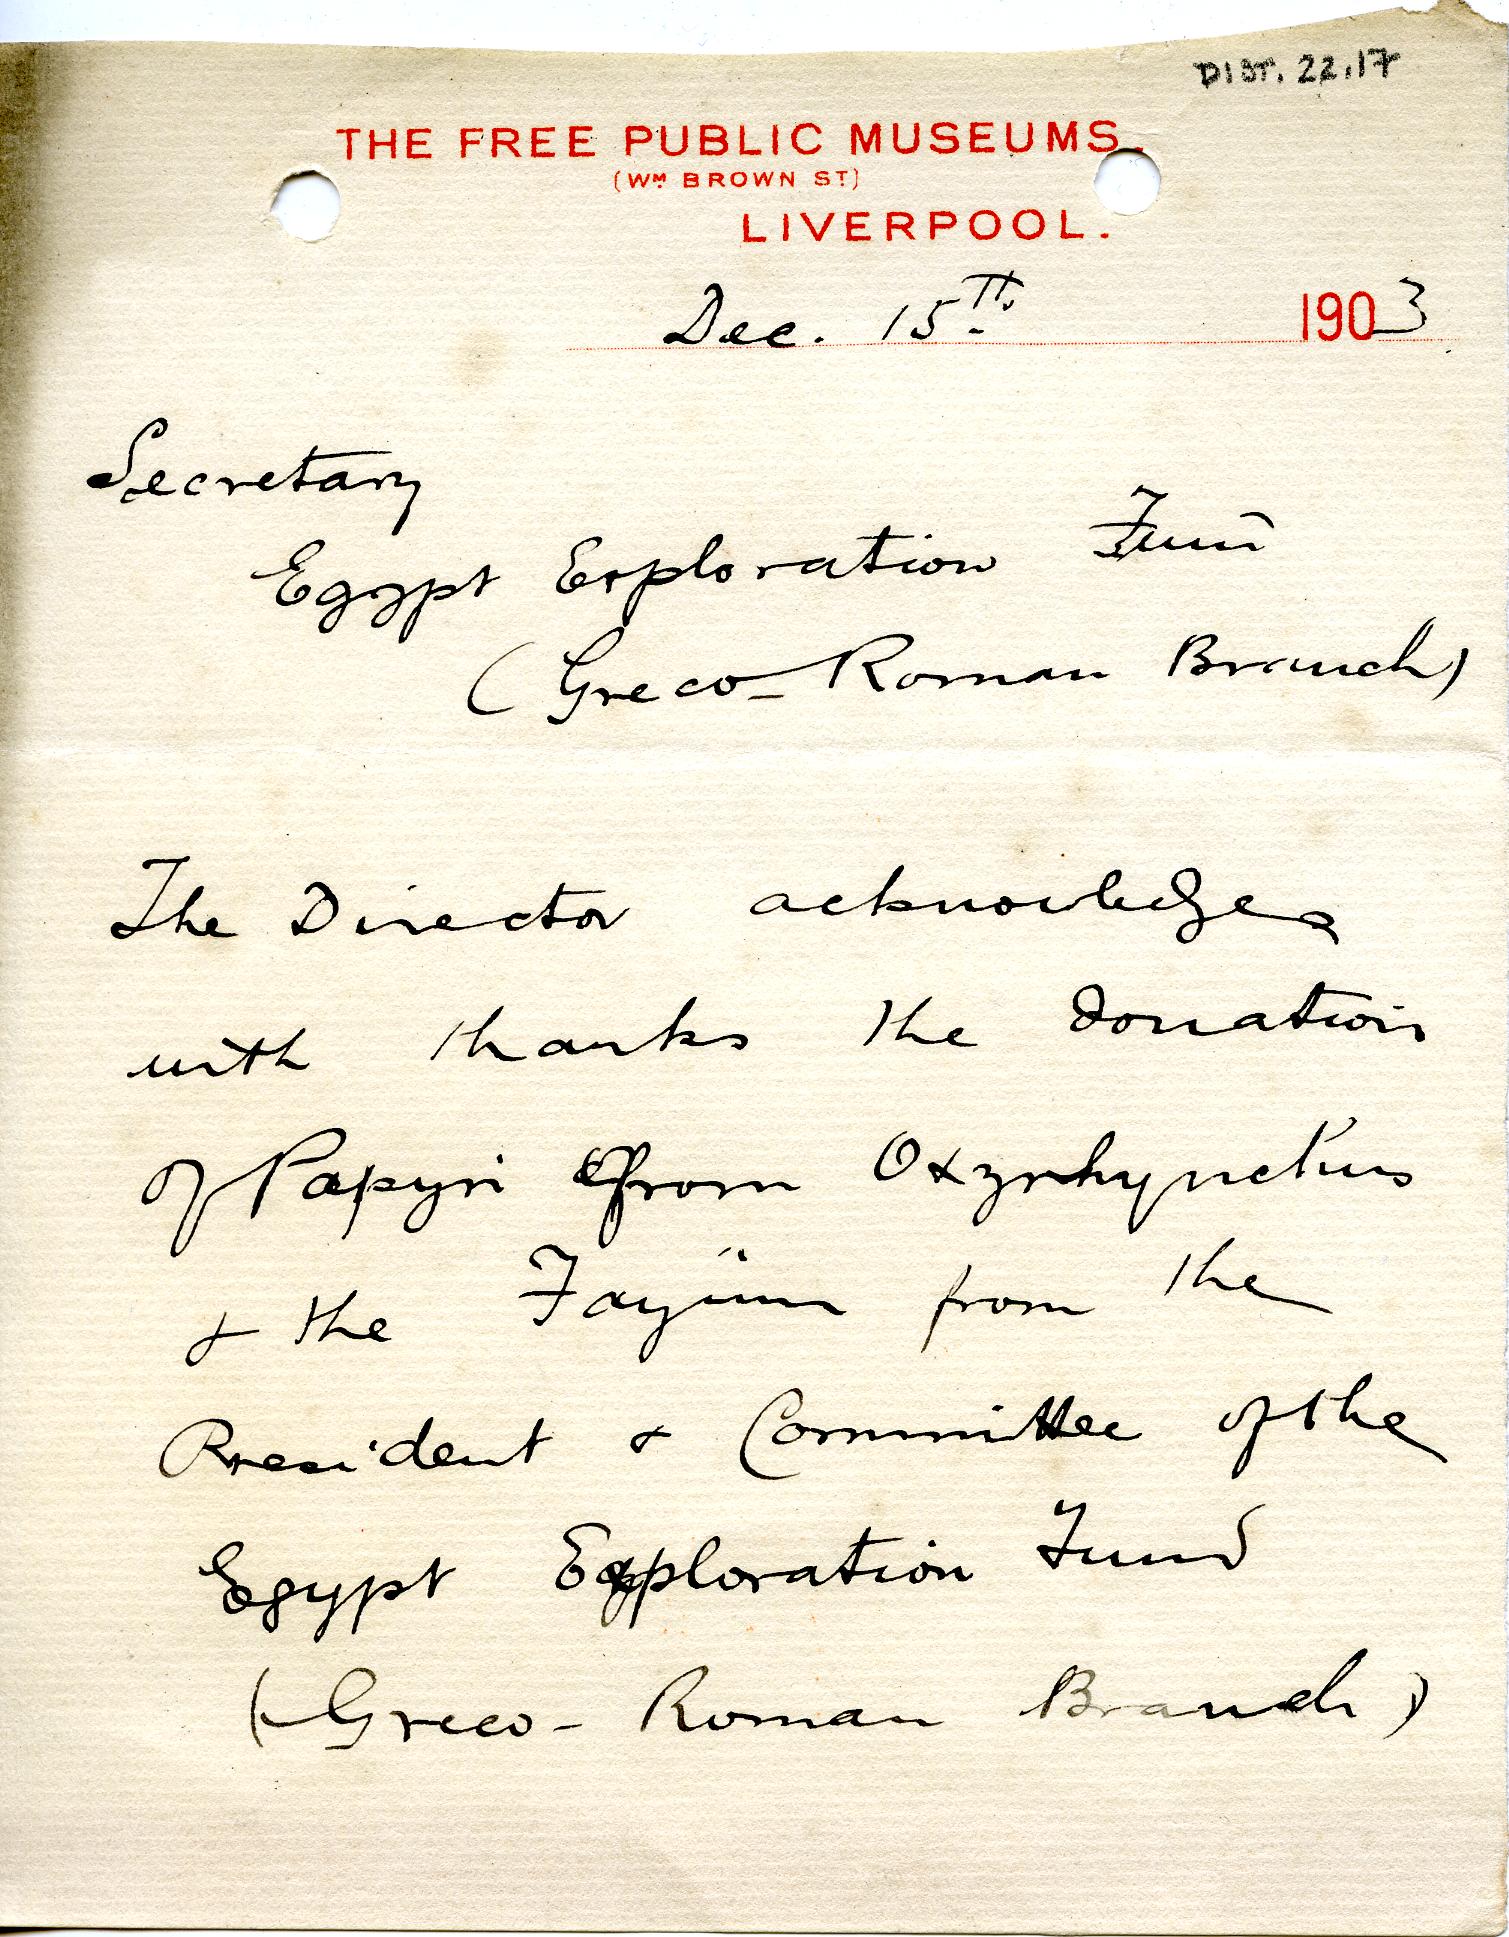 DIST. 22.17
THE FREE PUBLIC MUSEUMS.
(WM BROWN ST)
LIVERPOOL.
Dec. 15th 1903
Secretary
Egypt Exploration Fund
(Greco-Roman Branch)
The Director acknowledges
with thanks the donation
of Papyri from Oxyrhynchus
& the Fayüm from the
President & Committee of the
Egypt Exploration Fund
(Greco-Roman Branch)